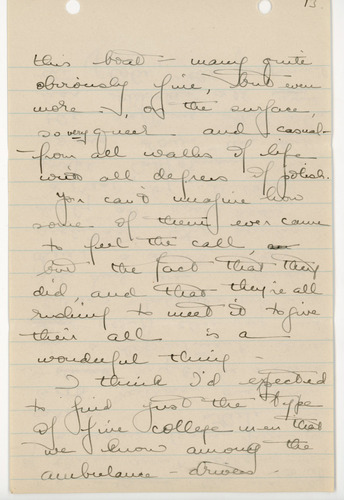 13.
this boat – many quite
obviously fine, but even
more, on the surface,
so very queer and casual –
– from all walks of life
with all degrees of polish.
You can't imagine how
some of them ever came
to feel the call,
but the fact that they
did, and that they're all
rushing to meet it to give
their all is a
wonderful thing –
I think I'd expected
to find just the type
of fine college men that
we know among the
ambulance – drivers –